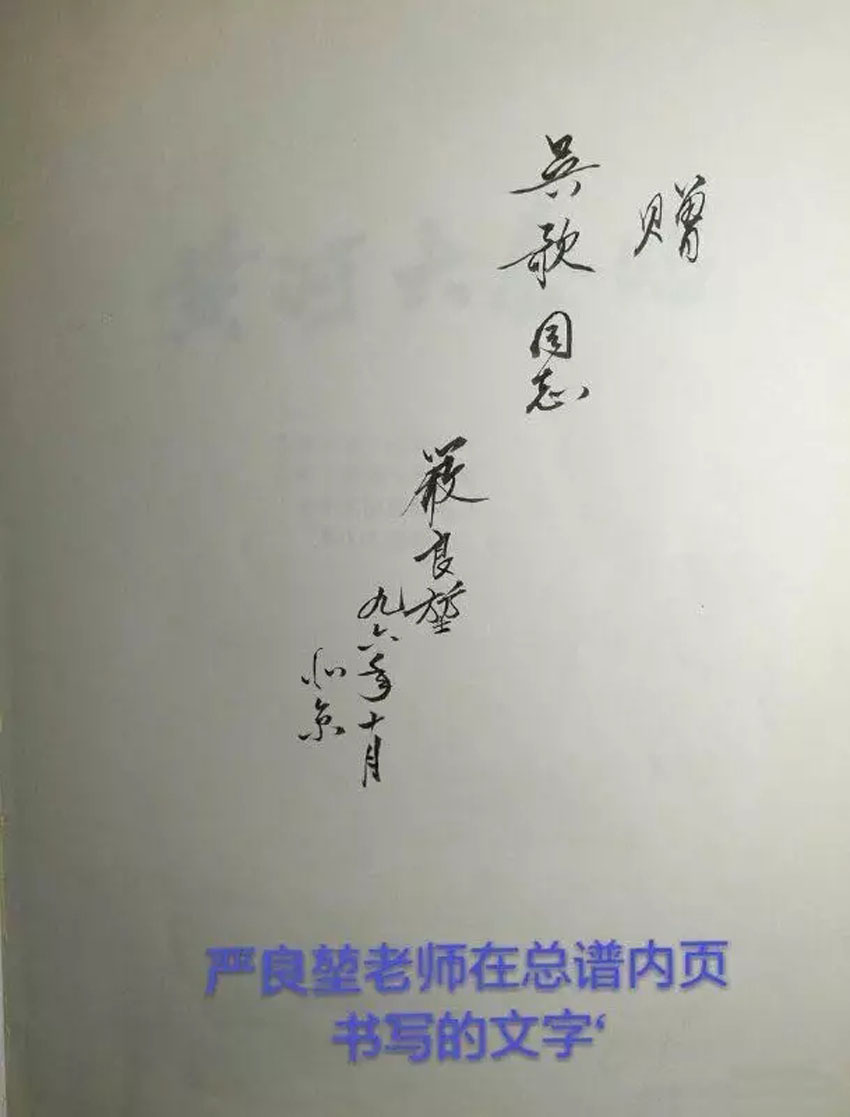 赠
吳歌同志
嚴良堃
九六年十月
北京
严良堃老师在总谱内页
书写的文字‘